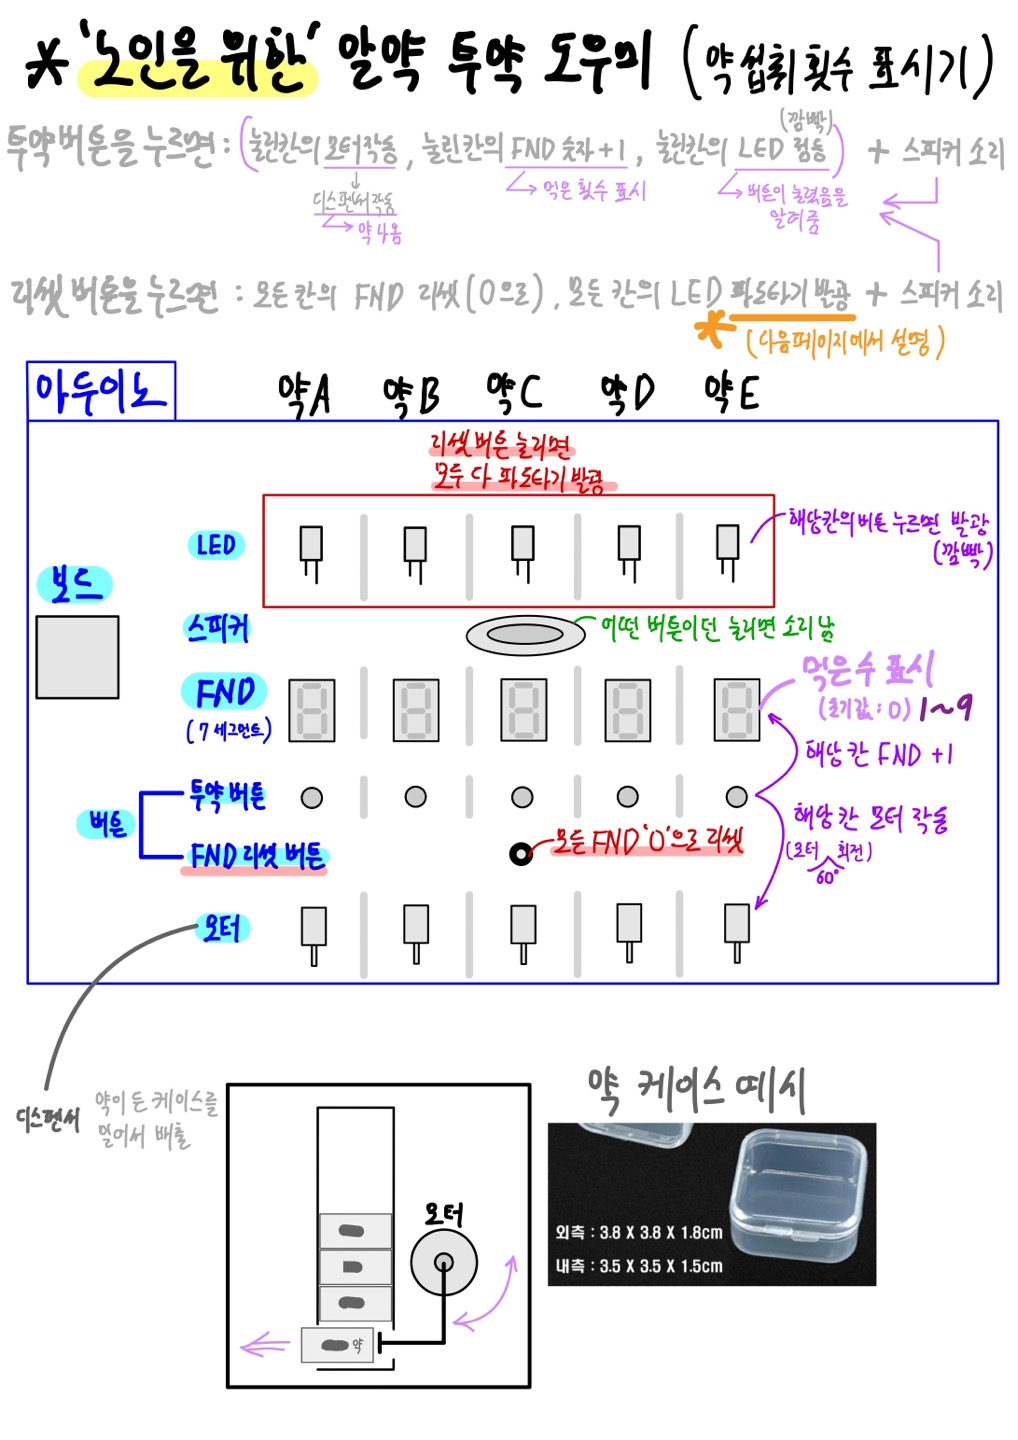 * '노인을 위한' 알약 투약 도우미 (약 섭취 횟수 표시기)
투약 버튼을 누르면 : (눌린칸의 모터작동, 눌린칸의 FND 숫자+1, 눌린칸의 LED 점등(깜빡)) + 스피커 소리
디스펜서 작동
약 나옴
먹은 횟수 표시
버튼이 눌렸음을
알려줌
리셋 버튼을 누르면 : 모든칸의 FND 리셋(0으로), 모든 칸의 LED 파도타기 발광 + 스피커 소리
* (다음페이지에서 설명)
아두이노
약A 약B 약C 약D 약E
리셋 버튼 눌리면
모두 다 파도타기 발광
LED
해당칸의 버튼 누르면 발광
(깜빡)
보드
스피커
어떤 버튼이던 눌리면 소리남
FND
(7 세그먼트)
먹은 수 표시
(초기값 : 0) 1~9
해당 칸 FND +1
버튼
투약 버튼
해당 칸 모터 작동
(모터 회전)
60°
FND 리셋 버튼
모든 FND '0'으로 리셋
모터
디스펜서
약이 든 케이스를
밀어서 배출
모터
약
약 케이스 예시
외측 : 3.8 X 3.8 X 1.8cm
내측 : 3.5 X 3.5 X 1.5cm